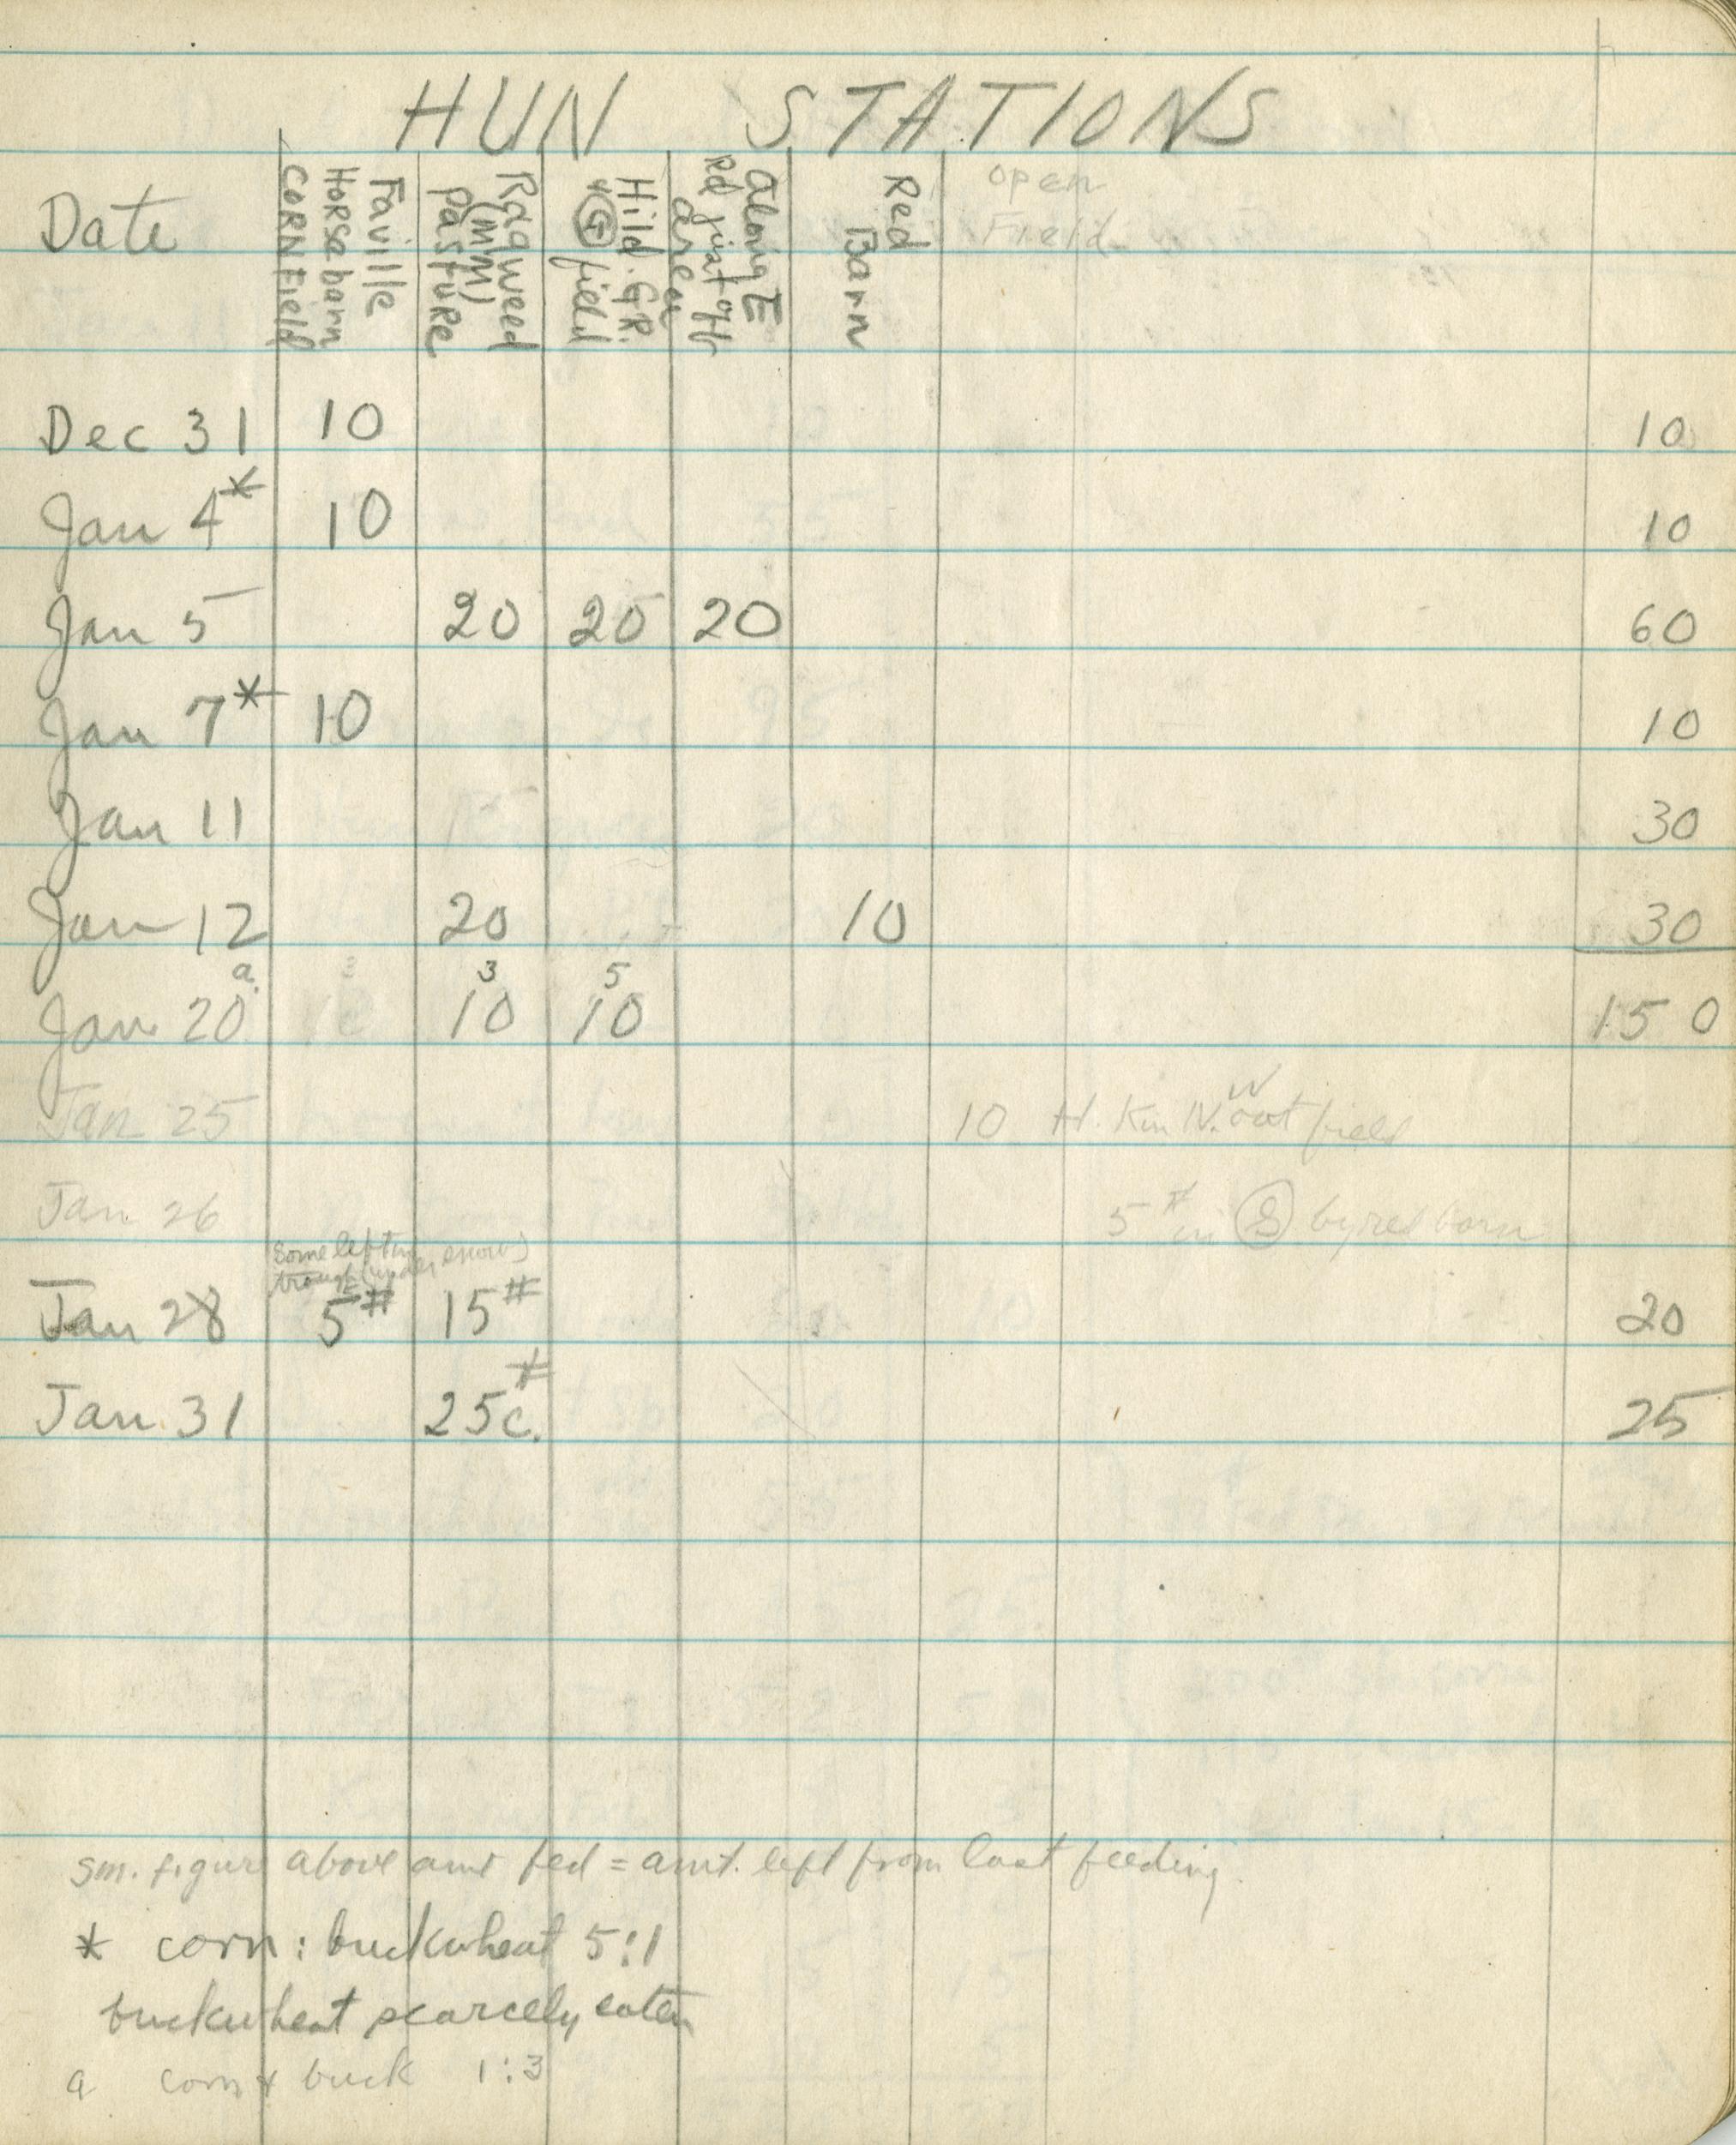 HUN STATIONS
Date
Faville
Horse barn
CORN Field
Ragweed
(MM)
Pasture
Hild. GR.
G field
along E
Rd just off
area
Red
Barn
open
Field
Dec 31 10 10
Jan 4* 10 10
Jan 5 20 20 20 60
Jan 7* 10 10
Jan 11 30
Jan 12 20 10 30
a 3 3 5
Jan 20 10 10 10 150
W
Jan 25 10 oat field
Jan 26 5# in S by red barn
Some left in
trough (under snow)
Jan 28 5# 15# 20
Jan 31 25c.# 25
sm. figure above amt fed = amt. left from last feeding.
* corn : buckwheat 5:1
buckwheat scarcely eaten
a corn + buck 1:3